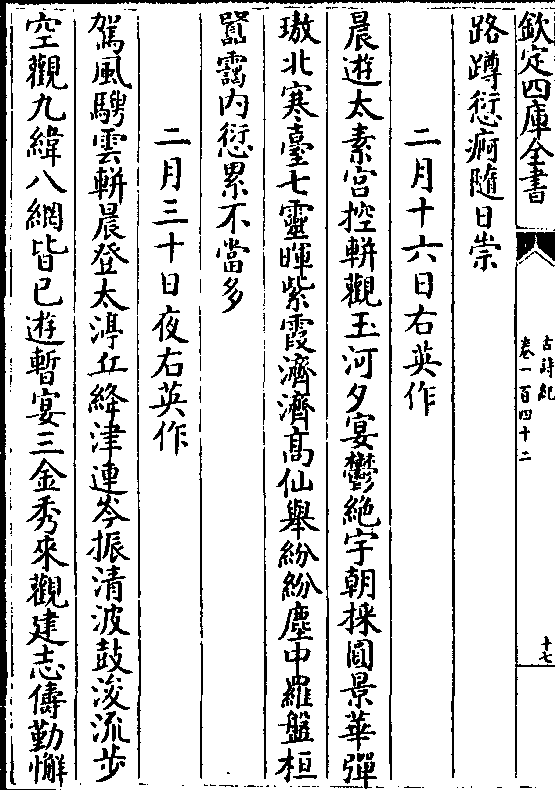 欽定四庫全書
古詩紀
卷一百四十二
十七
路蹲愆痾隨日崇
二月十六日右英作
晨遊太素宮控軿觀玉河夕宴鬱絶宇朝採圓景華彈
璈北寒臺七靈暉紫霞濟濟高仙舉紛紛塵中羅盤桓
囂靄内愆累不當多
二月三十日夜右英作
駕風騁雲軿晨登太渟丘絳津連岑振清波鼓浚流步
空觀九緯八網皆已遊暫宴三金秀來觀建志儔勤懈